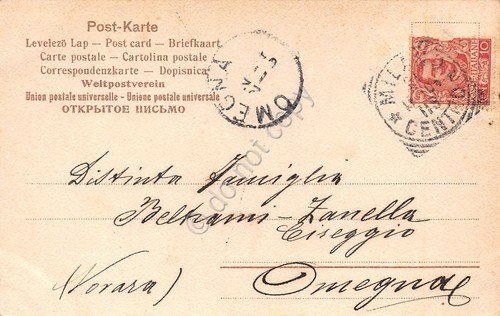 Post-Karte
Levelező Lap — Post card — Briefkaart
Carte postale — Cartolina postale
Correspondenzkarte — Dopisnica
Weltpostverein
Union postale universelle - Unione postale universale
ОТКРЫТОЕ ПИСЬМО
OMEGNA
MILANO
CENTRO
10
do not copy
Distinta famiglia
Beltrami-Zanella
Ciseggio
(Novara) Omegna